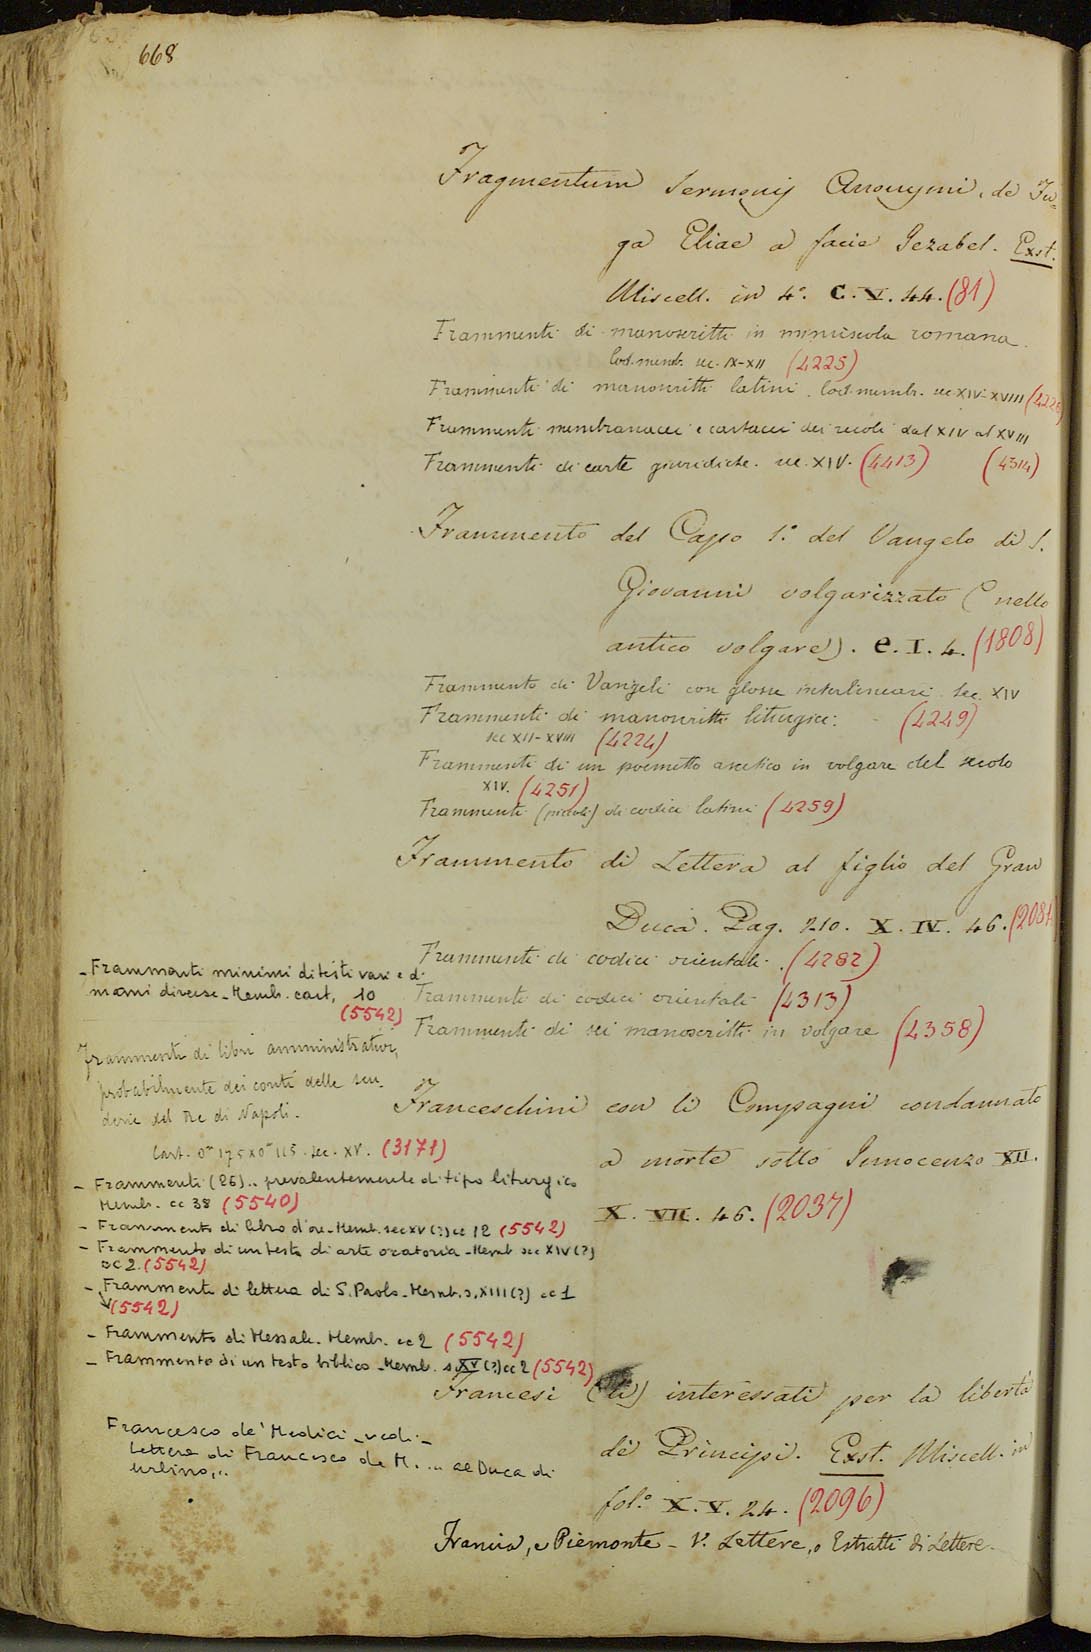 668
Fragmentum Sermonis Anonymi, de Fu=
ga Eliae a facie Jezabel. Exst.
Miscell. in 4.° C. V. 44. (81)
Frammenti di manoscritti in minuscola romana.
Cod. memb. sec. IX-XII (4225)
Frammenti di manoscritti latini. Cod. memb. sec. XIV-XVIII (4226)
Frammenti membranacei e cartacei dei secoli dal XIV al XVIII
Frammenti di carte giuridiche. sec. XIV. (4413) (4314)
Frammento del Capo 1.° del Vangelo di S.
Giovanni volgarizzato (nello
antico volgare). e. I. 4. (1808)
Frammento di Vangeli con glosse interlineari. Sec. XIV
Frammenti di manoscritti liturgici. (4249)
sec XII-XVIII (4224)
Frammenti di un poemetto ascetico in volgare del secolo
XIV. (4251)
Frammenti (piccoli) di codici latini (4259)
Frammento di Lettera al figlio del Gran
Duca. Pag. 210. X. IV. 46. (2084)
Frammenti di codici orientali. (4282)
Frammenti di codici orientali (4313)
Frammenti di sei manoscritti in volgare (4358)
Franceschini con li Compagni condannato
a morte sotto Innocenzo XII.
X. VII. 46. (2037)
Francesi (li) interessati per la libertà
dè Principi. Exst. Miscell. in
fol.° X. V. 24. (2096)
Francia, e Piemonte - V. Lettere, o Estratti di Lettere.
- Frammenti minimi di testi vari e di
mani diverse - Memb. cart, 10
(5542)
Frammenti di libri amministrativi,
probabilmente dei conti delle scu-
derie del Re di Napoli.
Cart. 0m 175x0m 115. sec. XV. (3171)
- Frammenti (26).. prevalentemente di tipo liturgico
Memb. cc 38 (5540)
- Frammento di libro d'ore - Memb. sec XV (?) cc 12 (5542)
- Frammento di un testo di arte oratoria - Memb sec XIV (?)
cc 2. (5542)
- Frammento di lettera di S. Paolo - Memb. s. XIII (?) cc 1
(5542)
- Frammento di Messale. Memb. cc 2 (5542)
- Frammento di un testo biblico - Memb. s. XV (?) cc 2 (5542)
Francesco de' Medici - vedi -
Lettera di Francesco de M. ... al Duca di
Urbino,..